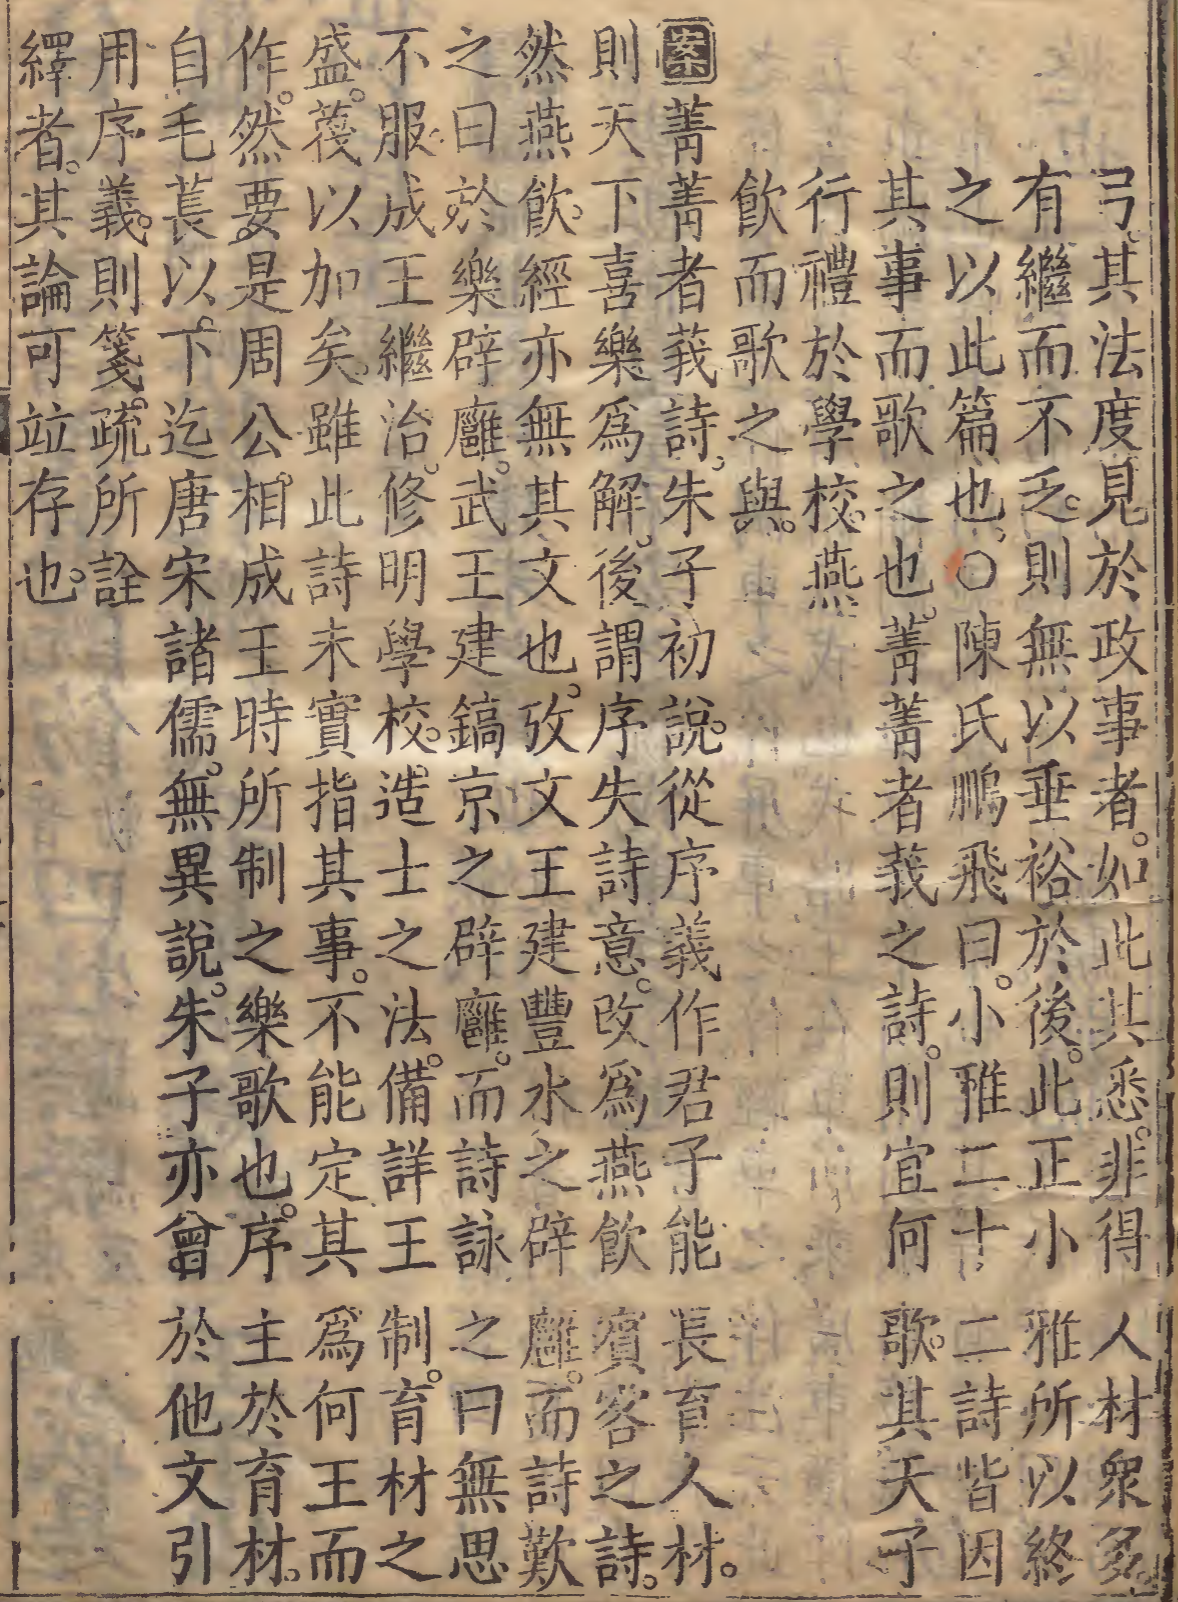 弓其法度見於政事者如此其悉非得人材衆多
有繼而不乏則無以垂裕於後此正小雅所以終
之以此篇也○陳氏鵬飛曰小雅二十二詩皆因
其事而歌之也菁菁者莪之詩則宜何歌其天子
行禮於學校燕
飲而歌之與
案菁菁者莪詩朱子初說從序義作君子能長育人材
則天下喜樂爲解後謂序失詩意改爲燕飲賓客之詩
然燕飲經亦無其文也攷文王建豐水之辟廱而詩歎
之曰於樂辟廱武王建鎬京之辟廱而詩詠之曰無思
不服成王繼治修明學校造士之法備詳王制育材之
盛蔑以加矣雖此詩未實指其事不能定其爲何王而
作然要是周公相成王時所制之樂歌也序主於育材
自毛萇以下迄唐宋諸儒無異說朱子亦曾於他文引
用序義則箋疏所詮
繹者其論可竝存也